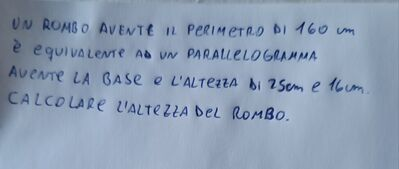 UN ROMBO AVENTE IL PERIMETRO DI 160 cm
è EQUIVALENTE AD UN PARALLELOGRAMMA
AVENTE LA BASE e L'ALTEZZA DI 25cm e 16cm.
CALCOLARE L'ALTEZZA DEL ROMBO.